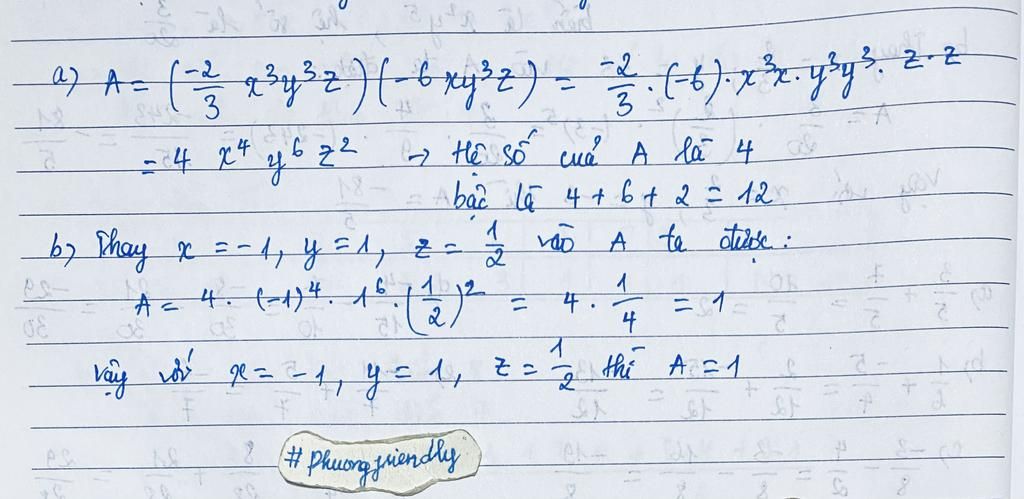 a) A = (-2/3 x³y³z)(-6xy³z) = -2/3 . (-6) . x³x . y³y³ . z . z
= 4 x⁴ y⁶ z² → Hệ số của A là 4
bậc là 4 + 6 + 2 = 12
b) Thay x = -1, y = 1, z = 1/2 vào A ta được :
A = 4 . (-1)⁴ . 1⁶ . (1/2)² = 4 . 1/4 = 1
Vậy với x = -1, y = 1, z = 1/2 thì A = 1
# Phuongfriendly